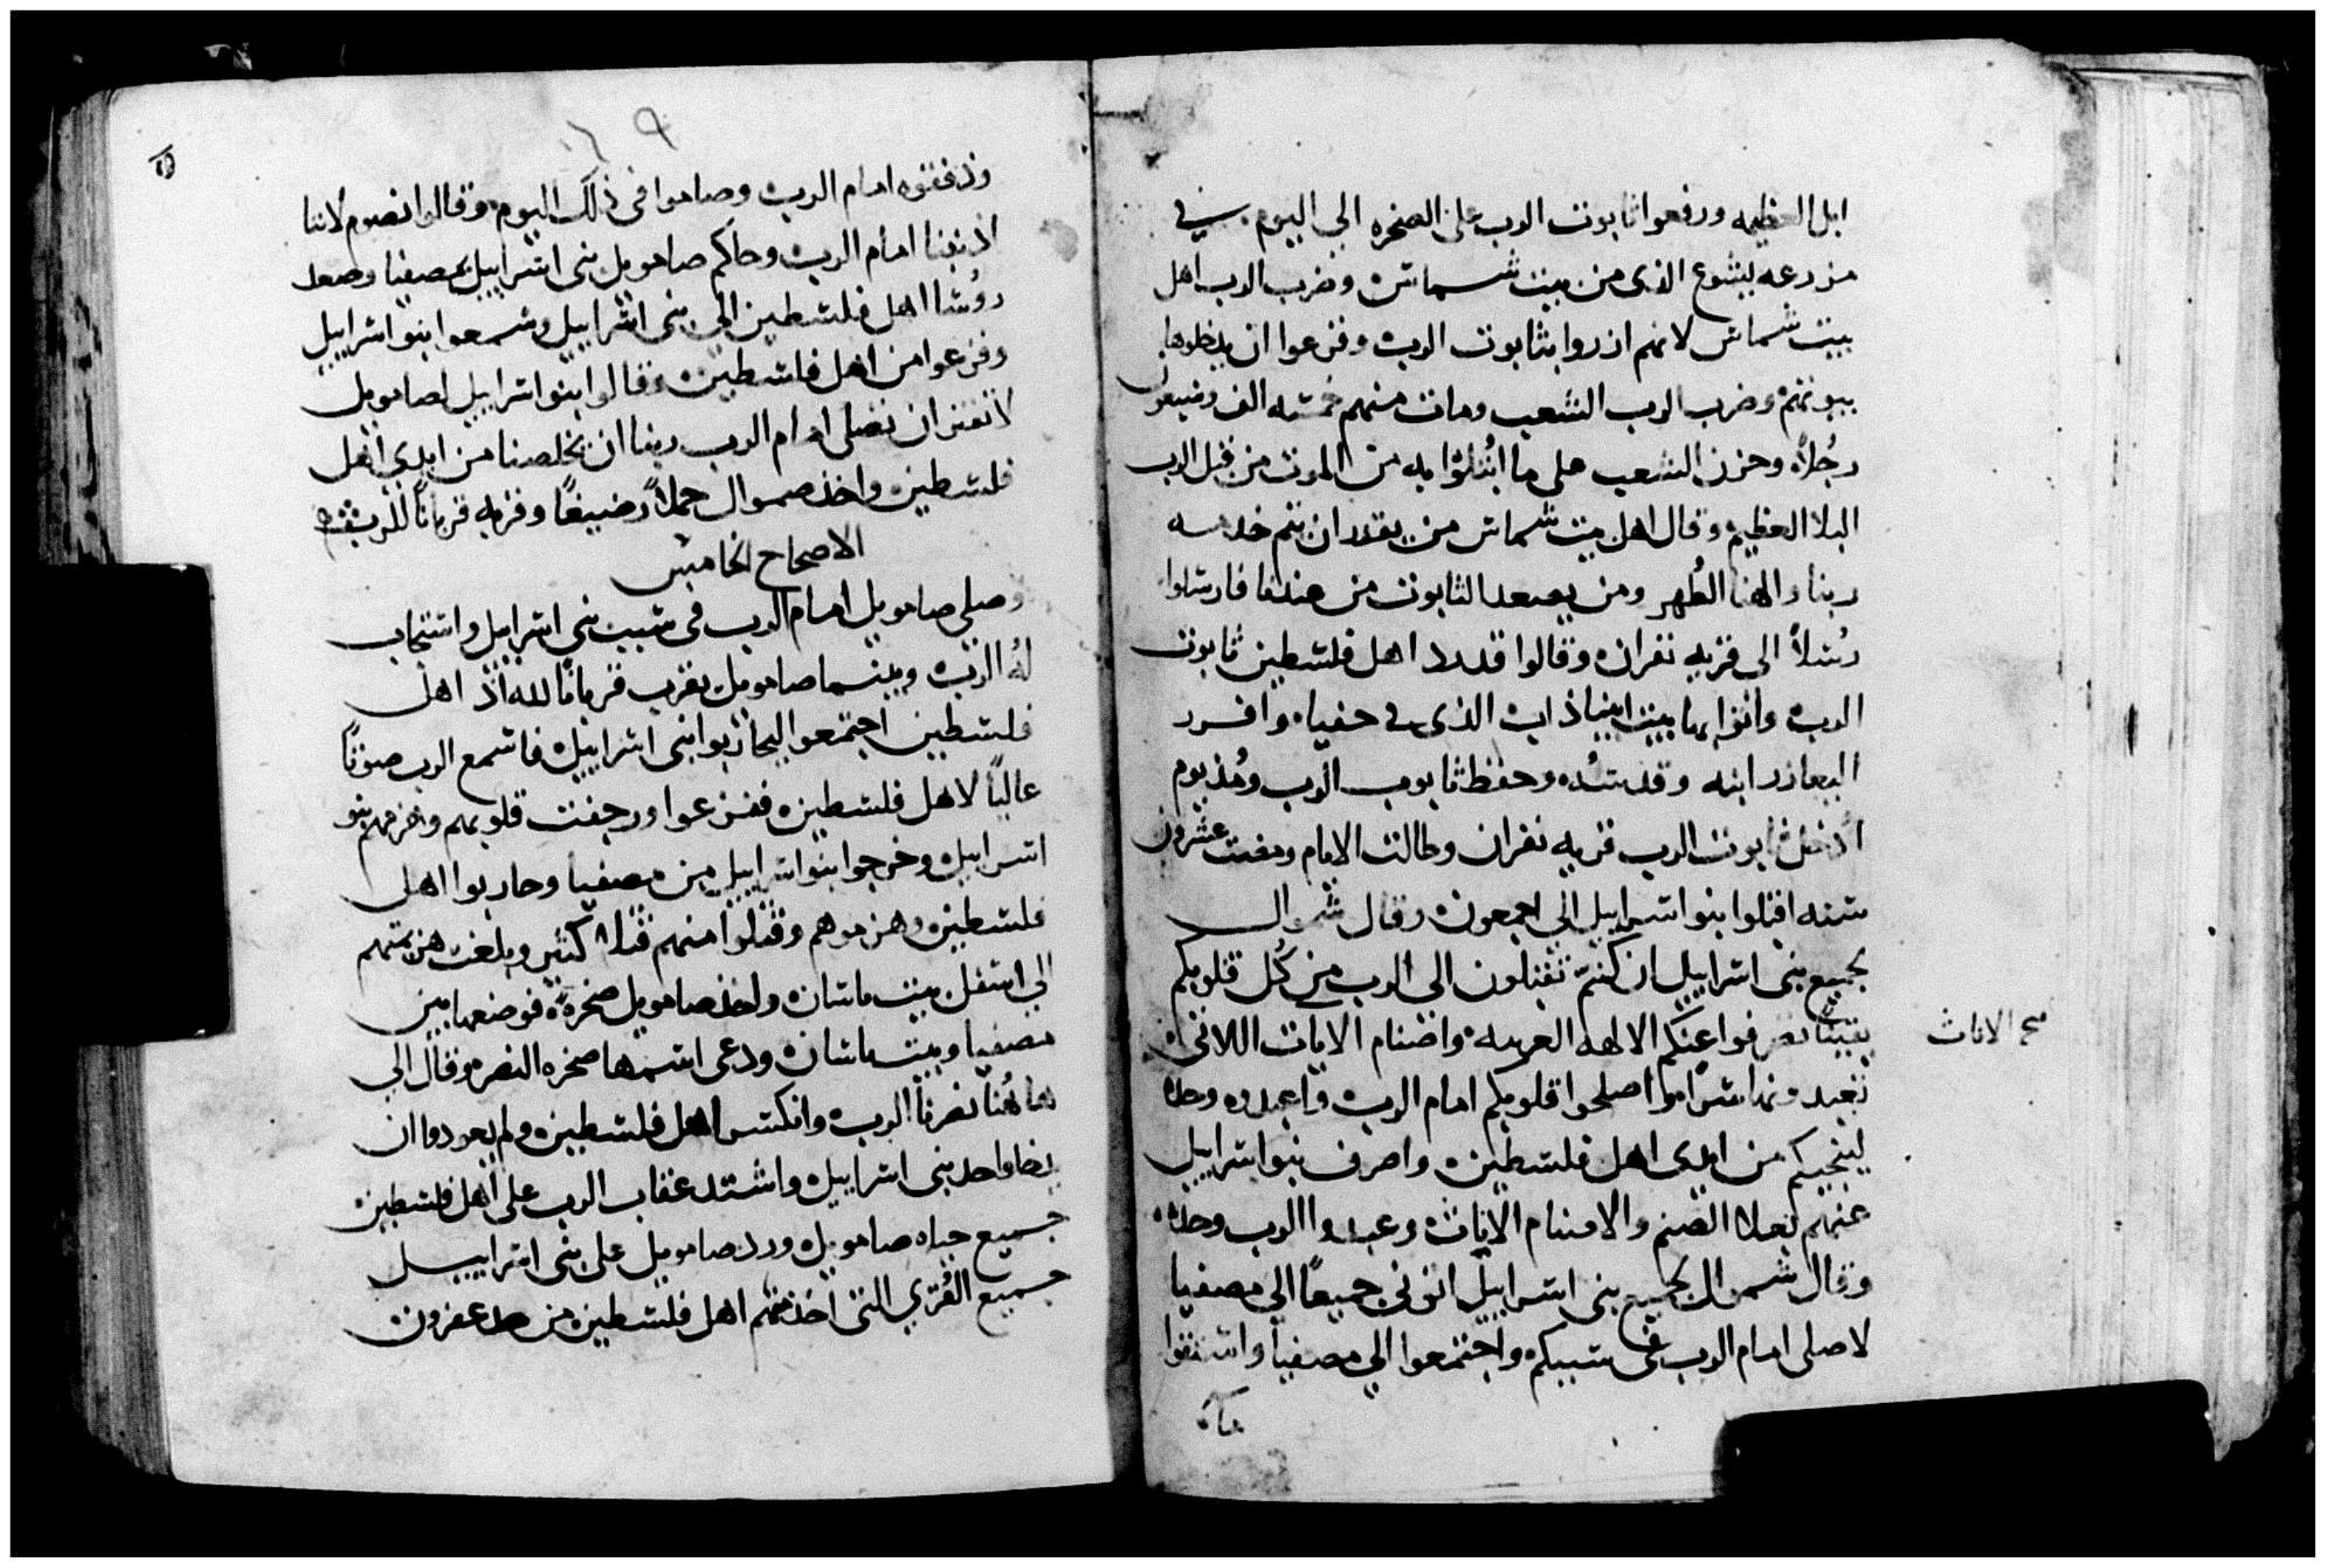 ابل العظيمه ورفعوا تابوت الرب على الصخره الى اليوم في
مزرعه يشوع الذى من بيت شماش وضرب الرب اهل
بيت شماش لانهم ازدروا بتابوت الرب وفزعوا ان يدخلوها
بيوتهم وضرب الرب الشعب ومات منهم خمسه الف وسبعون
رجُلاً وحزن الشعب على ما ابتُلوا به من الموت من قبل الرب
البلا العظيم وقال اهل بيت شماش من يقدر ان يتم خدمه
ربنا والهنا الطُهر ومن يصعد التابوت من عندنا فارسلوا
رُسلاً الى قريه نفران وقالوا قد رد اهل فلسطين تابوت
الرب واتوا بها بيت ابيناذاب الذى في حفياه وافرد
اليعازر ابنه وقدسُه وحفظ تابوت الرب ومُذ يوم
اُدخل تابوت الرب قريه نفران وطالت الايام ومضت عشرون
سنه اقبلوا بنو اسراييل الى اجمعون وقال شموال
لجميع بنى اسراييل ان كنتم تقبلون الى الرب من كُل قلوبكم
يقيناً تصرفوا عنكم الالهه الغريبه واصنام الاياث اللاتى
تعبدونها سراً واصلحوا قلوبكم امام الرب واعبدوه وحده
لينجيكم من ايدى اهل فلسطين واصرف بنو اسراييل
عنهم بعلا الصنم والاصنام الاياث وعبدوا الرب وحده
وقال شموال لجميع بنى اسراييل اتونى جميعاً الى مصفيا
لاصلى امام الرب فى سببكم واجتمعوا الى مصفيا واستقوا
مآء
صح الاناث
ودفقوه امام الرب وصاموا فى ذلك اليوم وقالوا نصوم لاننا
اذنبنا امام الرب وحاكم صامويل بنى اسراييل بمصفيا وصعد
روُسا اهل فلسطين الى بنى اسراييل وسمعوا بنو اسراييل
وفزعوا من اهل فلسطين وقالوا بنو اسراييل لصامويل
لا تفتر ان تصلى امام الرب ربنا ان يخلصنا من ايدى اهل
فلسطين واخذ صموال حملاً رضيعاً وقربه قرباناً للرب
الاصحاح الخامس
وصلى صامويل امام الرب فى سبب بنى اسراييل واستجاب
لهُ الرب وبينما صامويل يقرب قرباناً لله اذ اهل
فلسطين اجتمعوا ليحاربوا بنى اسراييل فاسمع الرب صوتاً
عالياً لاهل فلسطين ففزعوا ورجفت قلوبهم وهزمهم بنو
اسراييل وخرجوا بنو اسراييل من مصفيا وحاربوا اهل
فلسطين وهزموهم وقتلوا منهم قتلا كثير وبلغت هزيمتهم
الى اسفل بيت ماشان واخذ صامويل صخرةً فوضعها بين
مصفيا وبيت ماشان ودعى اسمها صخره النصر وقال الى
ها هُنا نصرنا الرب وانكسر اهل فلسطين ولم يعودوا ان
يطاوا حد بنى اسراييل واشتد عقاب الرب على اهل فلسطين
جميع حياه صامويل ورد صامويل على بنى اسراييل
جميع القُرى التى اخذ منهم اهل فلسطين من حد عفرون